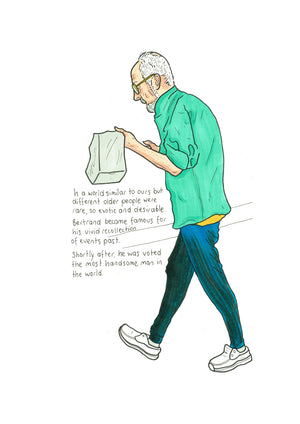 In a world similar to ours but
different older people were
rare, so exotic and desirable.
Bertrand became famous for
his vivid recollection
of events past.
Shortly after, he was voted
the most handsome man in
the world.